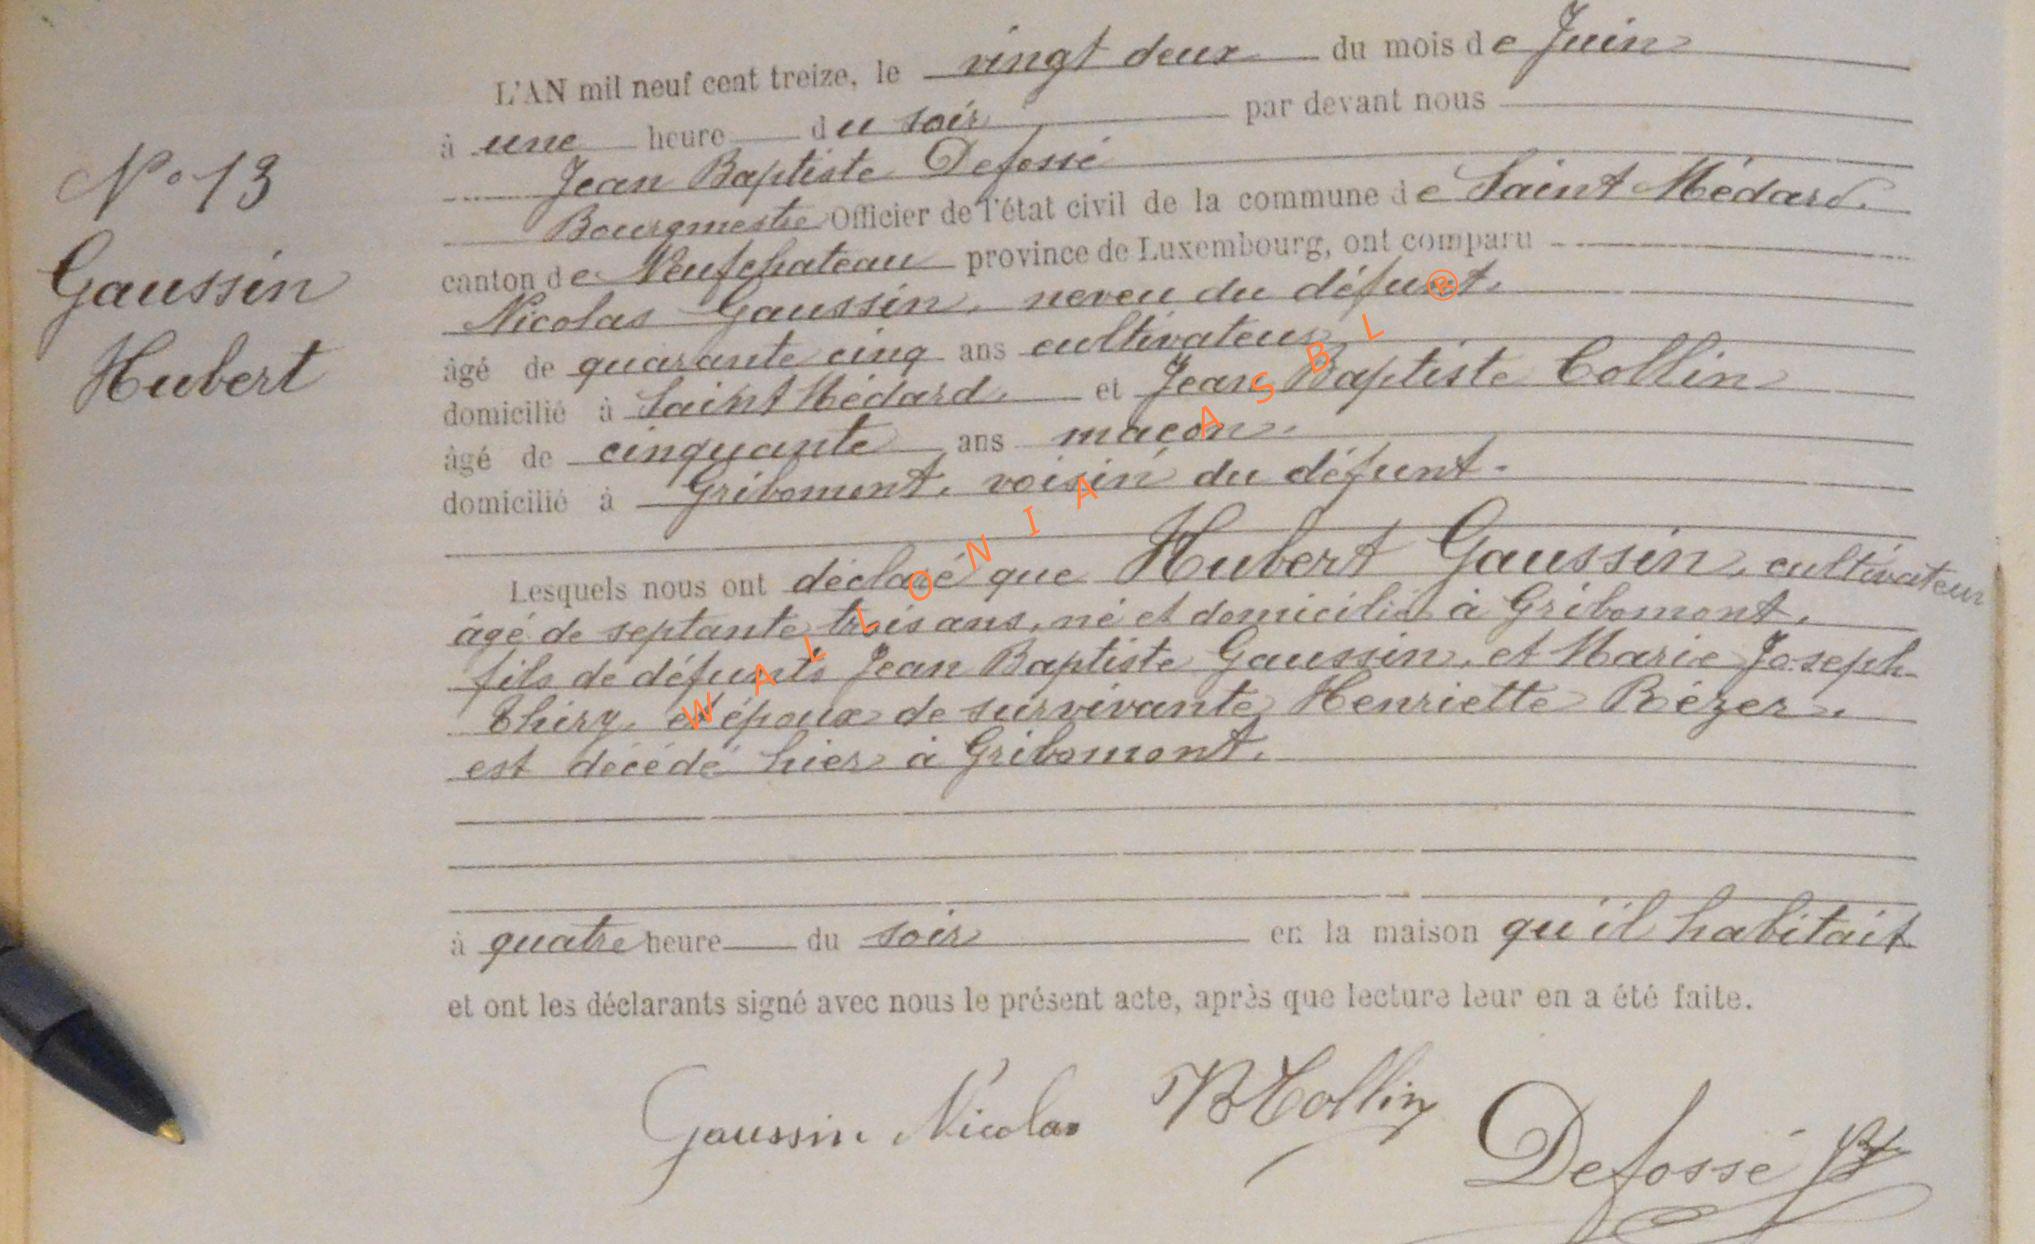 L'AN mil neuf cent treize, le vingt deux du mois de Juin
à une heure du soir par devant nous
Jean Baptiste Defossé
Bourgmestre Officier de l'état civil de la commune de Saint Médard.
canton de Neufchateau province de Luxembourg, ont comparu
Nicolas Gaussin, neveu du défunt.
âgé de quarante cinq ans cultivateur
domicilié à Saint Médard. et Jean Baptiste Collin
âgé de cinquante ans maçon.
domicilié à Gribomont, voisin du défunt.
Lesquels nous ont déclaré que Hubert Gaussin, cultivateur
âgé de septante trois ans, né et domicilié à Gribomont,
fils de défunts Jean Baptiste Gaussin, et Marie Joseph
Thiry, et époux de survivante Henriette Rézer,
est décédé hier à Gribomont.
à quatre heure du soir en la maison qu'il habitait
et ont les déclarants signé avec nous le présent acte, après que lecture leur en a été faite.
Gaussin Nicolas JB Collin
Defossé JB
N° 13
Gaussin
Hubert
WALLONIA ASBL ®